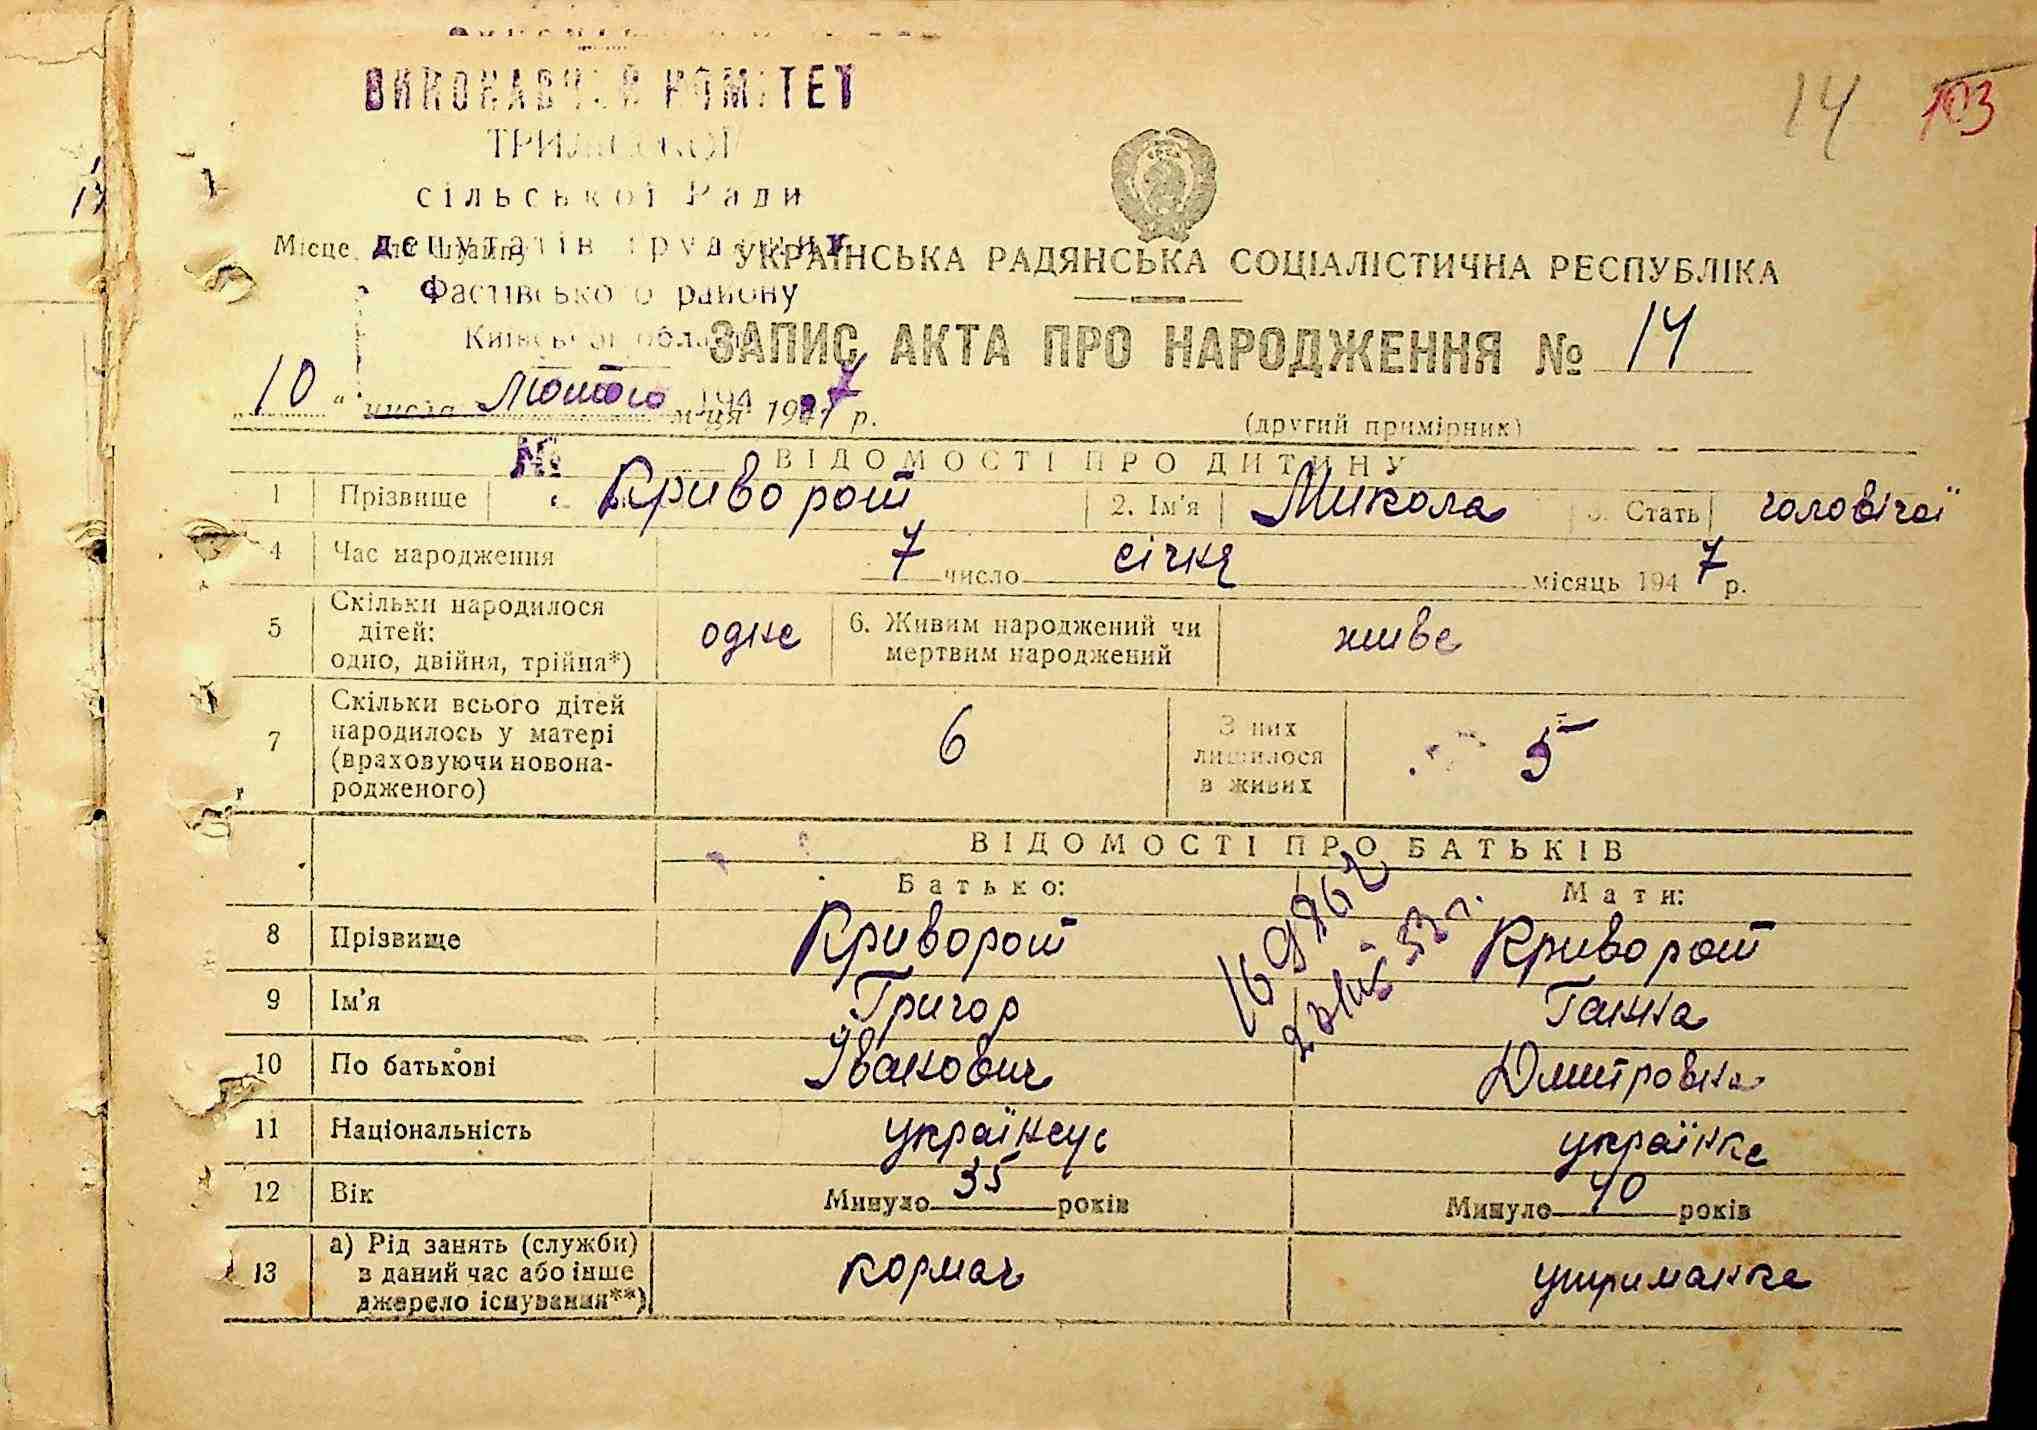 14 103
ВИКОНАВЧИЙ КОМІТЕТ
ТРИЛІСЬКОЇ
сільської Ради
депутатів трудящих
Місце для штампу
УКРАЇНСЬКА РАДЯНСЬКА СОЦІАЛІСТИЧНА РЕСПУБЛІКА
Фастівського району
Київської області
ЗАПИС АКТА ПРО НАРОДЖЕННЯ № 14
„10“ числа лютого м-ця 1947 р.
(другий примірник)
№
ВІДОМОСТІ ПРО ДИТИНУ
1 Прізвище Криворот 2. Ім'я Микола 3. Стать чоловічої
4 Час народження 7 число січня місяць 1947 р.
5 Скільки народилося
дітей:
одно, двійня, трійня*)
одне
6. Живим народжений чи
мертвим народжений
живе
7 Скільки всього дітей
народилось у матері
(враховуючи новона-
родженого)
6
З них
лишилося
в живих
5
ВІДОМОСТІ ПРО БАТЬКІВ
Батько: Мати:
8 Прізвище Криворот Криворот
9 Ім'я Григор Ганна
10 По батькові Іванович Дмитровна
11 Національність українець українка
12 Вік Минуло 35 років Минуло 40 років
13 а) Рід занять (служби)
в даний час або інше
джерело існування**)
кормач утриманка